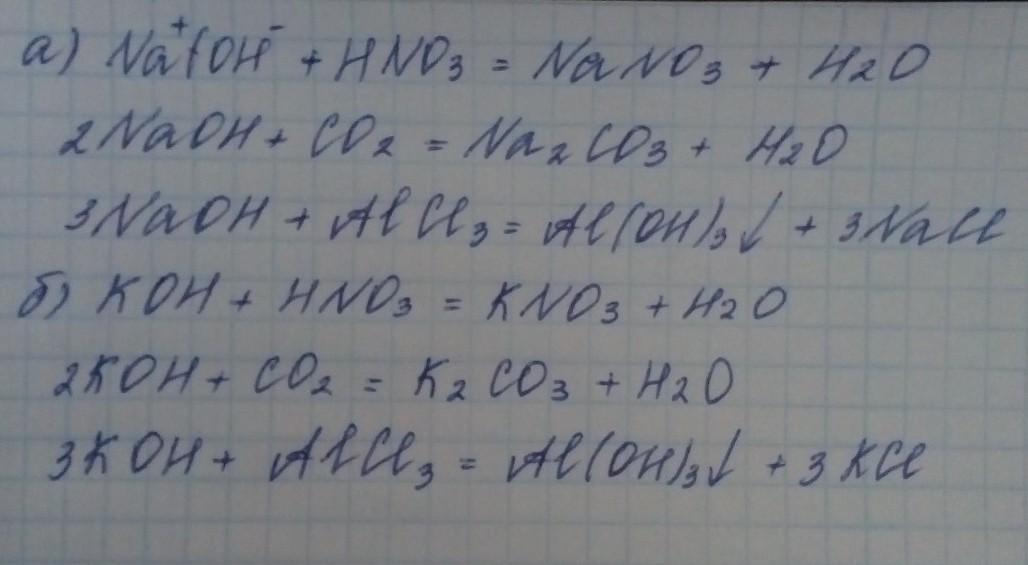 а) Na⁺(OH⁻ + HNO₃ = NaNO₃ + H₂O
2NaOH + CO₂ = Na₂CO₃ + H₂O
3NaOH + AlCl₃ = Al(OH)₃↓ + 3NaCl
б) KOH + HNO₃ = KNO₃ + H₂O
2KOH + CO₂ = K₂CO₃ + H₂O
3KOH + AlCl₃ = Al(OH)₃↓ + 3KCl